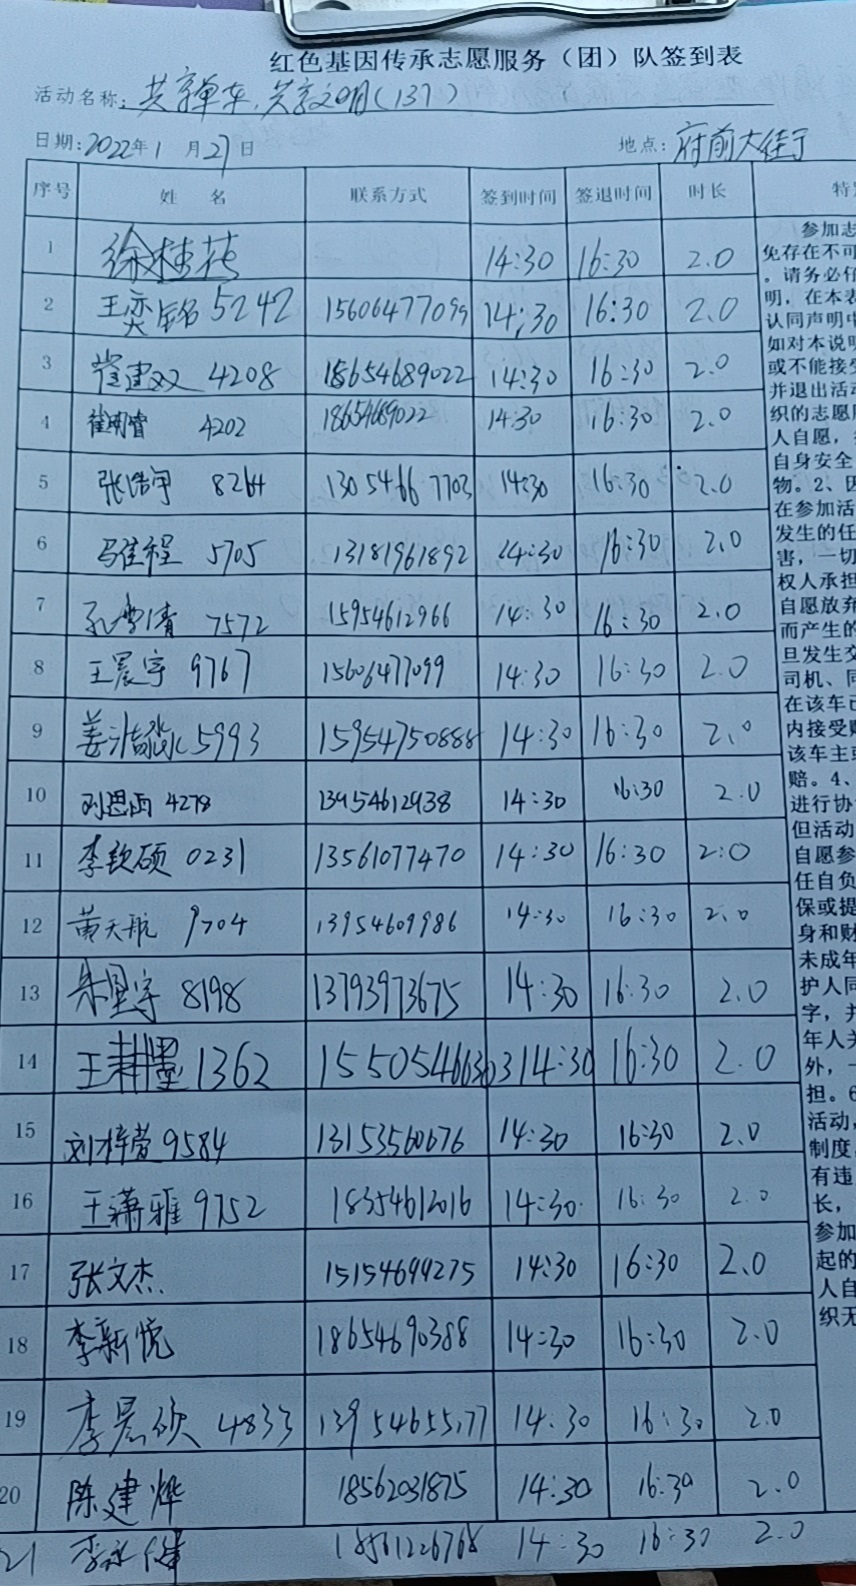 红色基因传承志愿服务（团）队签到表
活动名称：共享单车，共享文明（137）
日期：2022年1月27日 地点：府前大街
序号 姓名 联系方式 签到时间 签退时间 时长 特
1 徐桂花 14:30 16:30 2.0
2 王奕铭 5242 15606477099 14:30 16:30 2.0
3 崔建双 4208 18654689022 14:30 16:30 2.0
4 4202 18654689022 14:30 16:30 2.0
5 张浩宇 8264 13054667703 14:30 16:30 2.0
6 马佳程 5705 13181961892 14:30 16:30 2.0
7 孔雪倩 7572 15954612966 14:30 16:30 2.0
8 王宸宇 9767 15606477099 14:30 16:30 2.0
9 姜 5993 15954750888 14:30 16:30 2.0
10 刘思雨 4278 13954612938 14:30 16:30 2.0
11 李钦硕 0231 13561077470 14:30 16:30 2:0
12 黄天航 9704 13954609986 14:30 16:30 2.0
13 8198 13793973675 14:30 16:30 2.0
14 王耕墨 1362 15505466303 14:30 16:30 2.0
15 刘梓萱 9584 13153560676 14:30 16:30 2.0
16 王潇雅 9752 18354612016 14:30 16:30 2.0
17 张文杰 15154699275 14:30 16:30 2.0
18 李新悦 18654690388 14:30 16:30 2.0
19 李晨硕 4833 13954655177 14:30 16:30 2.0
20 陈建烨 18562031875 14:30 16:30 2.0
21 李永健 18561226768 14:30 16:30 2.0
参加志
免存在不可
。请务必仔
明，在本表
认同声明中
如对本说明
或不能接受
并退出活动
织的志愿服
人自愿，
自身安全
物。2、因
在参加活
发生的任
害，一切
权人承担
自愿放弃
而产生的
旦发生交
司机、同
在该车已
内接受赔
该车主或
赔。4、
进行协
但活动
自愿参
任自负
保或提
身和财
未成年
护人同
字，并
年人关
外，一
担。6
活动，
制度，
有违
长，
参加
起的
人自
织无